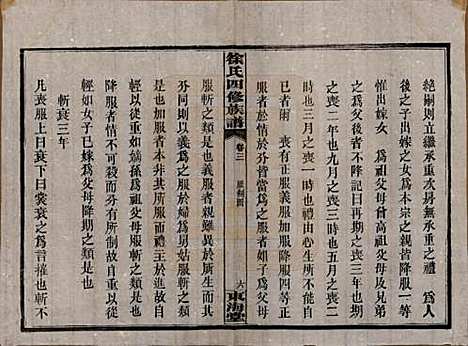 絕嗣則立繼承重次則無承重之禮　爲人
後之子出嫁之女爲本宗之親皆降服一等
惟出嫁女　爲祖父母曾高祖父母及兄弟
之爲父後者不降記曰再期之喪三年也期
之喪二年也九月七月之喪三時也五月之喪二
時也三月之喪一時也禮由心生所不能自
已者爾　喪有正服義服加服降服四等正
服者於情於分皆當爲之服者如子爲父母
徐氏四修族譜
卷三
服制圖
六
東海堂
服斬之類是也義服者親雖異於所生而其
分同則以義爲之服如婦爲男姑服斬之類
是也加服者本非其所服而禮主於進故自
輕以從重者也如嫡孫爲祖父母承重之類
降服者情不可殺而分有所制故自重以從
輕如女子已嫁爲父母降期之類是也
斬衰三年
凡喪服上曰衰下曰裳衰之爲言摧也斬不